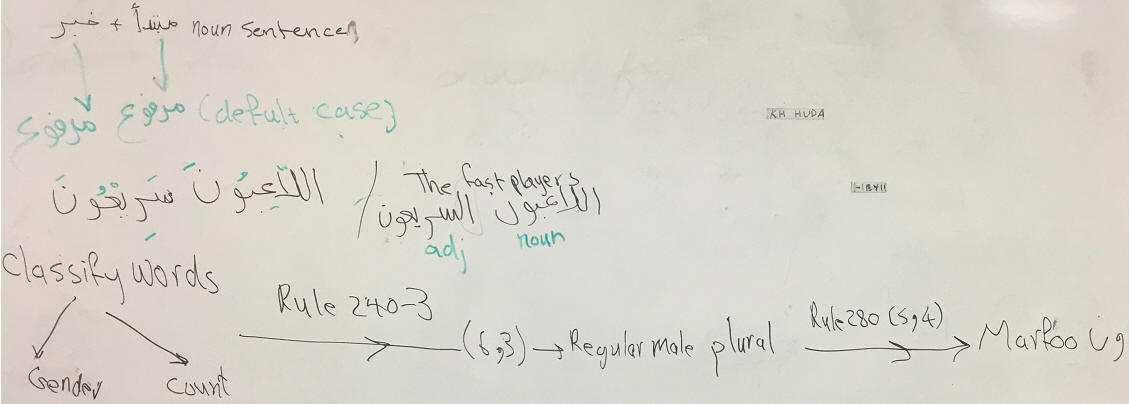 مبتدأ + خبر noun sentence
مرفوع مرفوع (defult case)
KH HUDA
اللَّاعِبُونَ سَرِيْعُونَ / The fast players
اللاعبون السريعون
adj noun
Classify words
Rule 240-3
(5,3) → Regular male plural
Rule 280 (5,4)
Marfoo ون
Gender Count